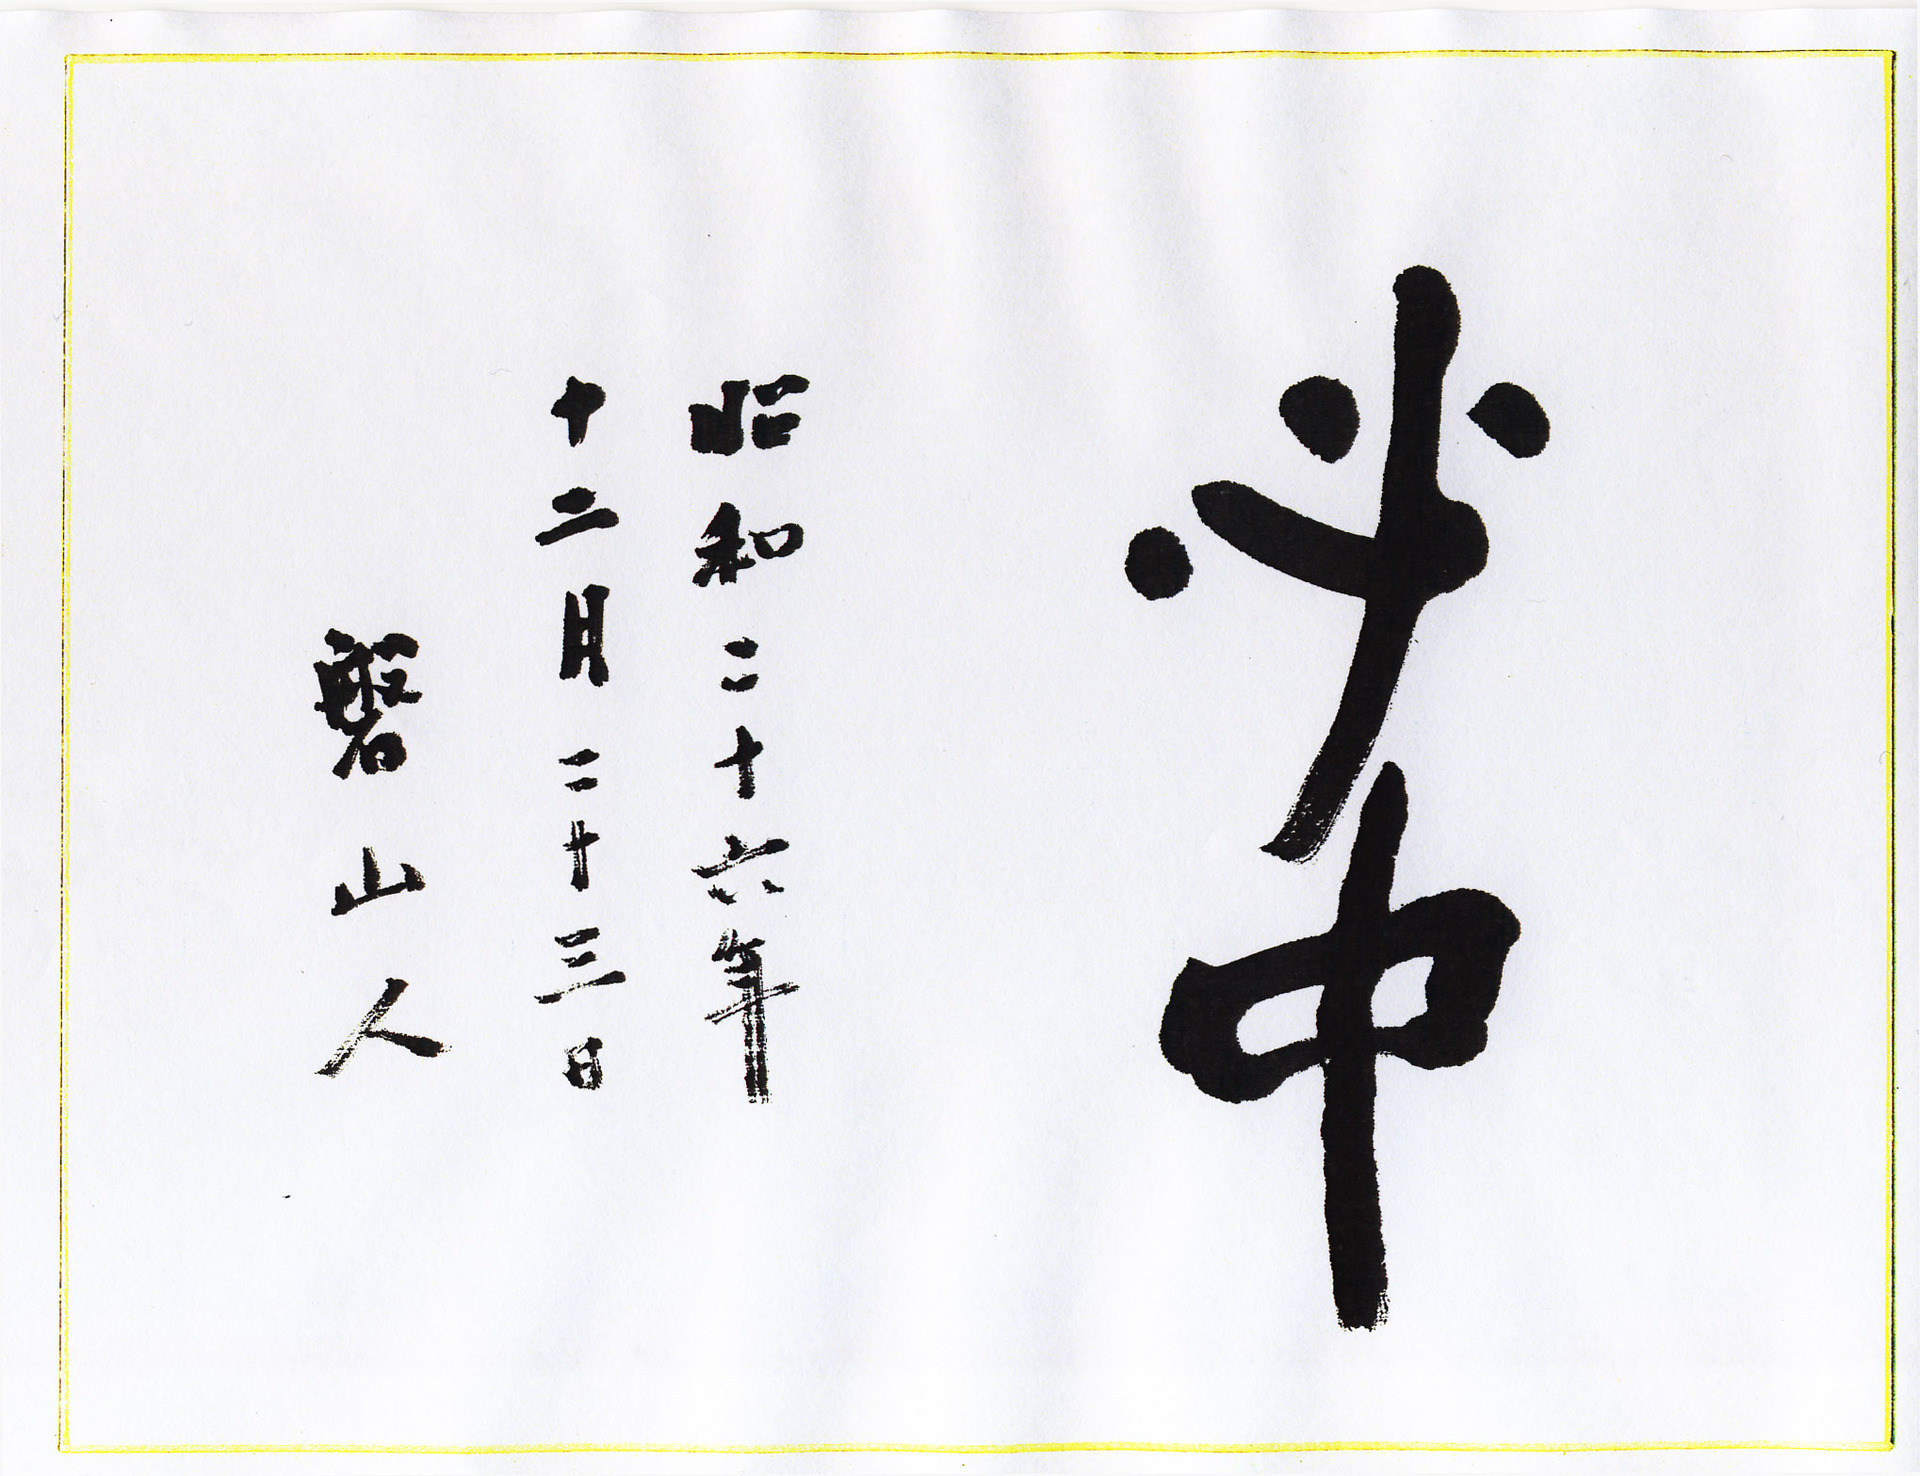 必中
昭和二十六年
十二月二十三日
磐山人